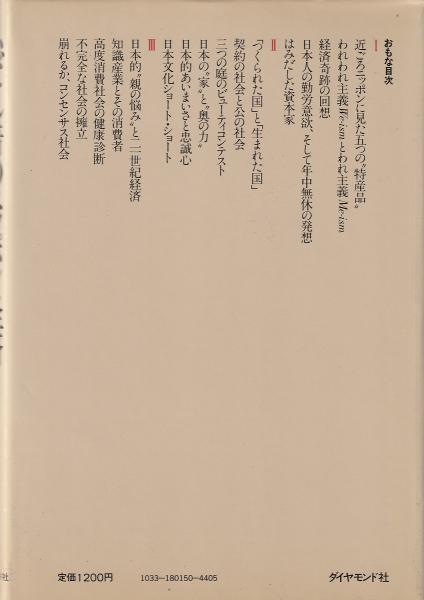 おもな目次
I
近ごろニッポンに見た五つの〝特産品〟
われわれ主義We-ismとわれ主義Me-ism
経済奇跡の回想
日本人の勤労意欲、そして年中無休の発想
はみだした資本家
II
「つくられた国」と「生まれた国」
契約の社会と公の社会
三つの庭のビューティ・コンテスト
日本の〝家〟と〝奥の力〟
日本的あいまいさと忠誠心
日本文化ショート・ショート
III
日本的〝親の悩み〟と二一世紀経済
知識産業とその消費者
高度消費社会の健康診断
不完全な社会の擁立
崩れるか、コンセンサス社会
定価1200円
1033-180150-4405
ダイヤモンド社